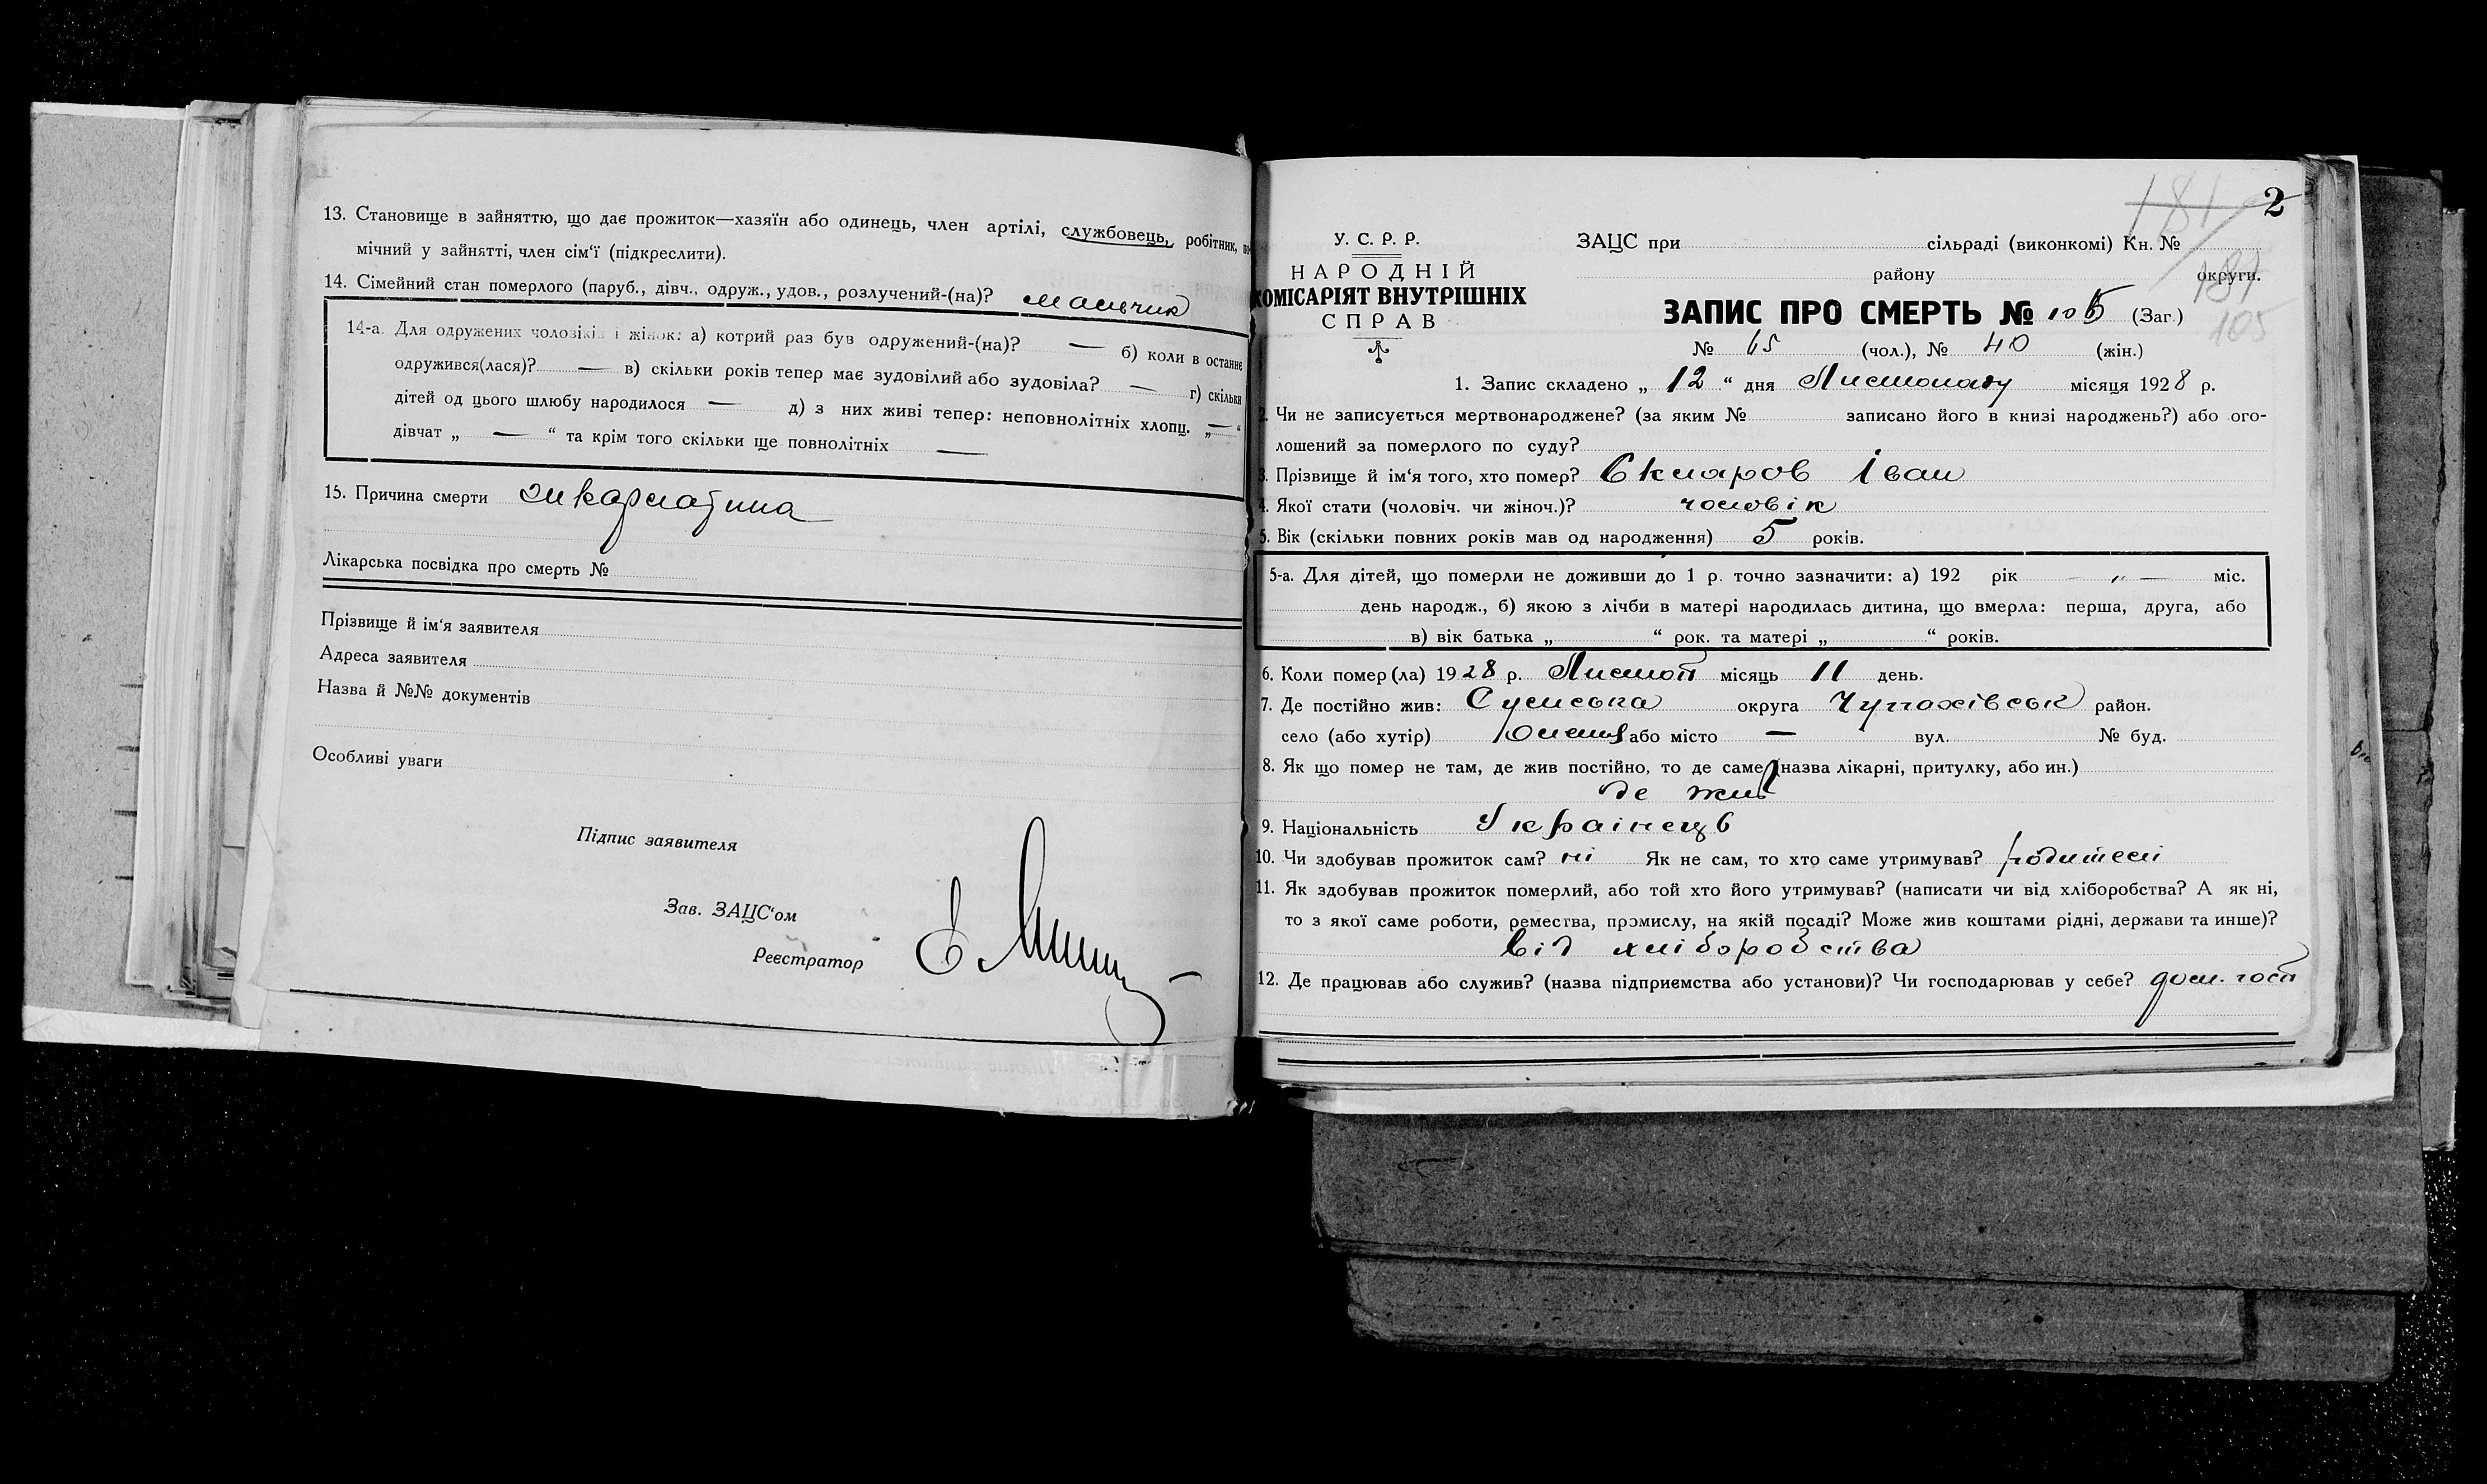 13. Становище в зайняттю, що дає прожиток—хазяїн або одинець, член артілі, службовець, робітник,
мічний у зайнятті, член сім'ї (підкреслити).
14. Сімейний стан померлого (паруб., дівч., одруж., удов., розлучений-(на)? мальчик
14-а. Для одружених чоловіків і жінок: а) котрий раз був одружений-(на)? — б) коли в останнє
одружився(лася)? — в) скільки років тепер має зудовілий або зудовіла? — г) скільки
дітей од цього шлюбу народилося — д) з них живі тепер: неповнолітніх хлопц. „ — “
дівчат „ — “ та крім того скільки ще повнолітніх —
15. Причина смерти
Лікарська посвідка про смерть №
Прізвище й ім'я заявителя
Адреса заявителя
Назва й №№ документів
Особливі уваги
Підпис заявителя
Зав. ЗАЦС'ом
Реєстратор
2
181
181
105
У. С. Р. Р.
НАРОДНІЙ
КОМІСАРІЯТ ВНУТРІШНІХ
СПРАВ
ЗАЦС при сільраді (виконкомі) Кн. №
району округи.
ЗАПИС ПРО СМЕРТЬ № 105 (Заг.)
№ 65 (чол.), № 40 (жін.)
1. Запис складено „ 12 “ дня Листопаду місяця 1928 р.
2. Чи не записується мертвонароджене? (за яким № записано його в книзі народжень?) або ого-
лошений за померлого по суду?
3. Прізвище й ім'я того, хто помер? Скляров Іван
4. Якої стати (чоловіч. чи жіноч.)? чоловік
5. Вік (скільки повних років мав од народження) 5 років.
5-а. Для дітей, що померли не доживши до 1 р. точно зазначити: а) 192 рік — „ — міс.
день народж., б) якою з лічби в матері народилась дитина, що вмерла: перша, друга, або
в) вік батька „ “ рок. та матері „ “ років.
6. Коли помер(ла) 1928 р. Листоп місяць 11 день.
7. Де постійно жив: Сумська округа Чупахівськ район.
село (або хутір) або місто — вул. № буд.
8. Як що помер не там, де жив постійно, то де саме (назва лікарні, притулку, або ин.)
де жив
9. Національність Українець
10. Чи здобував прожиток сам? ні Як не сам, то хто саме утримував? родителі
11. Як здобував прожиток померлий, або той хто його утримував? (написати чи від хліборобства? А як ні,
то з якої саме роботи, ремества, промислу, на якій посаді? Може жив коштами рідні, держави та инше)?
від хліборобства
12. Де працював або служив? (назва підприємства або установи)? Чи господарював у себе? дом. госп